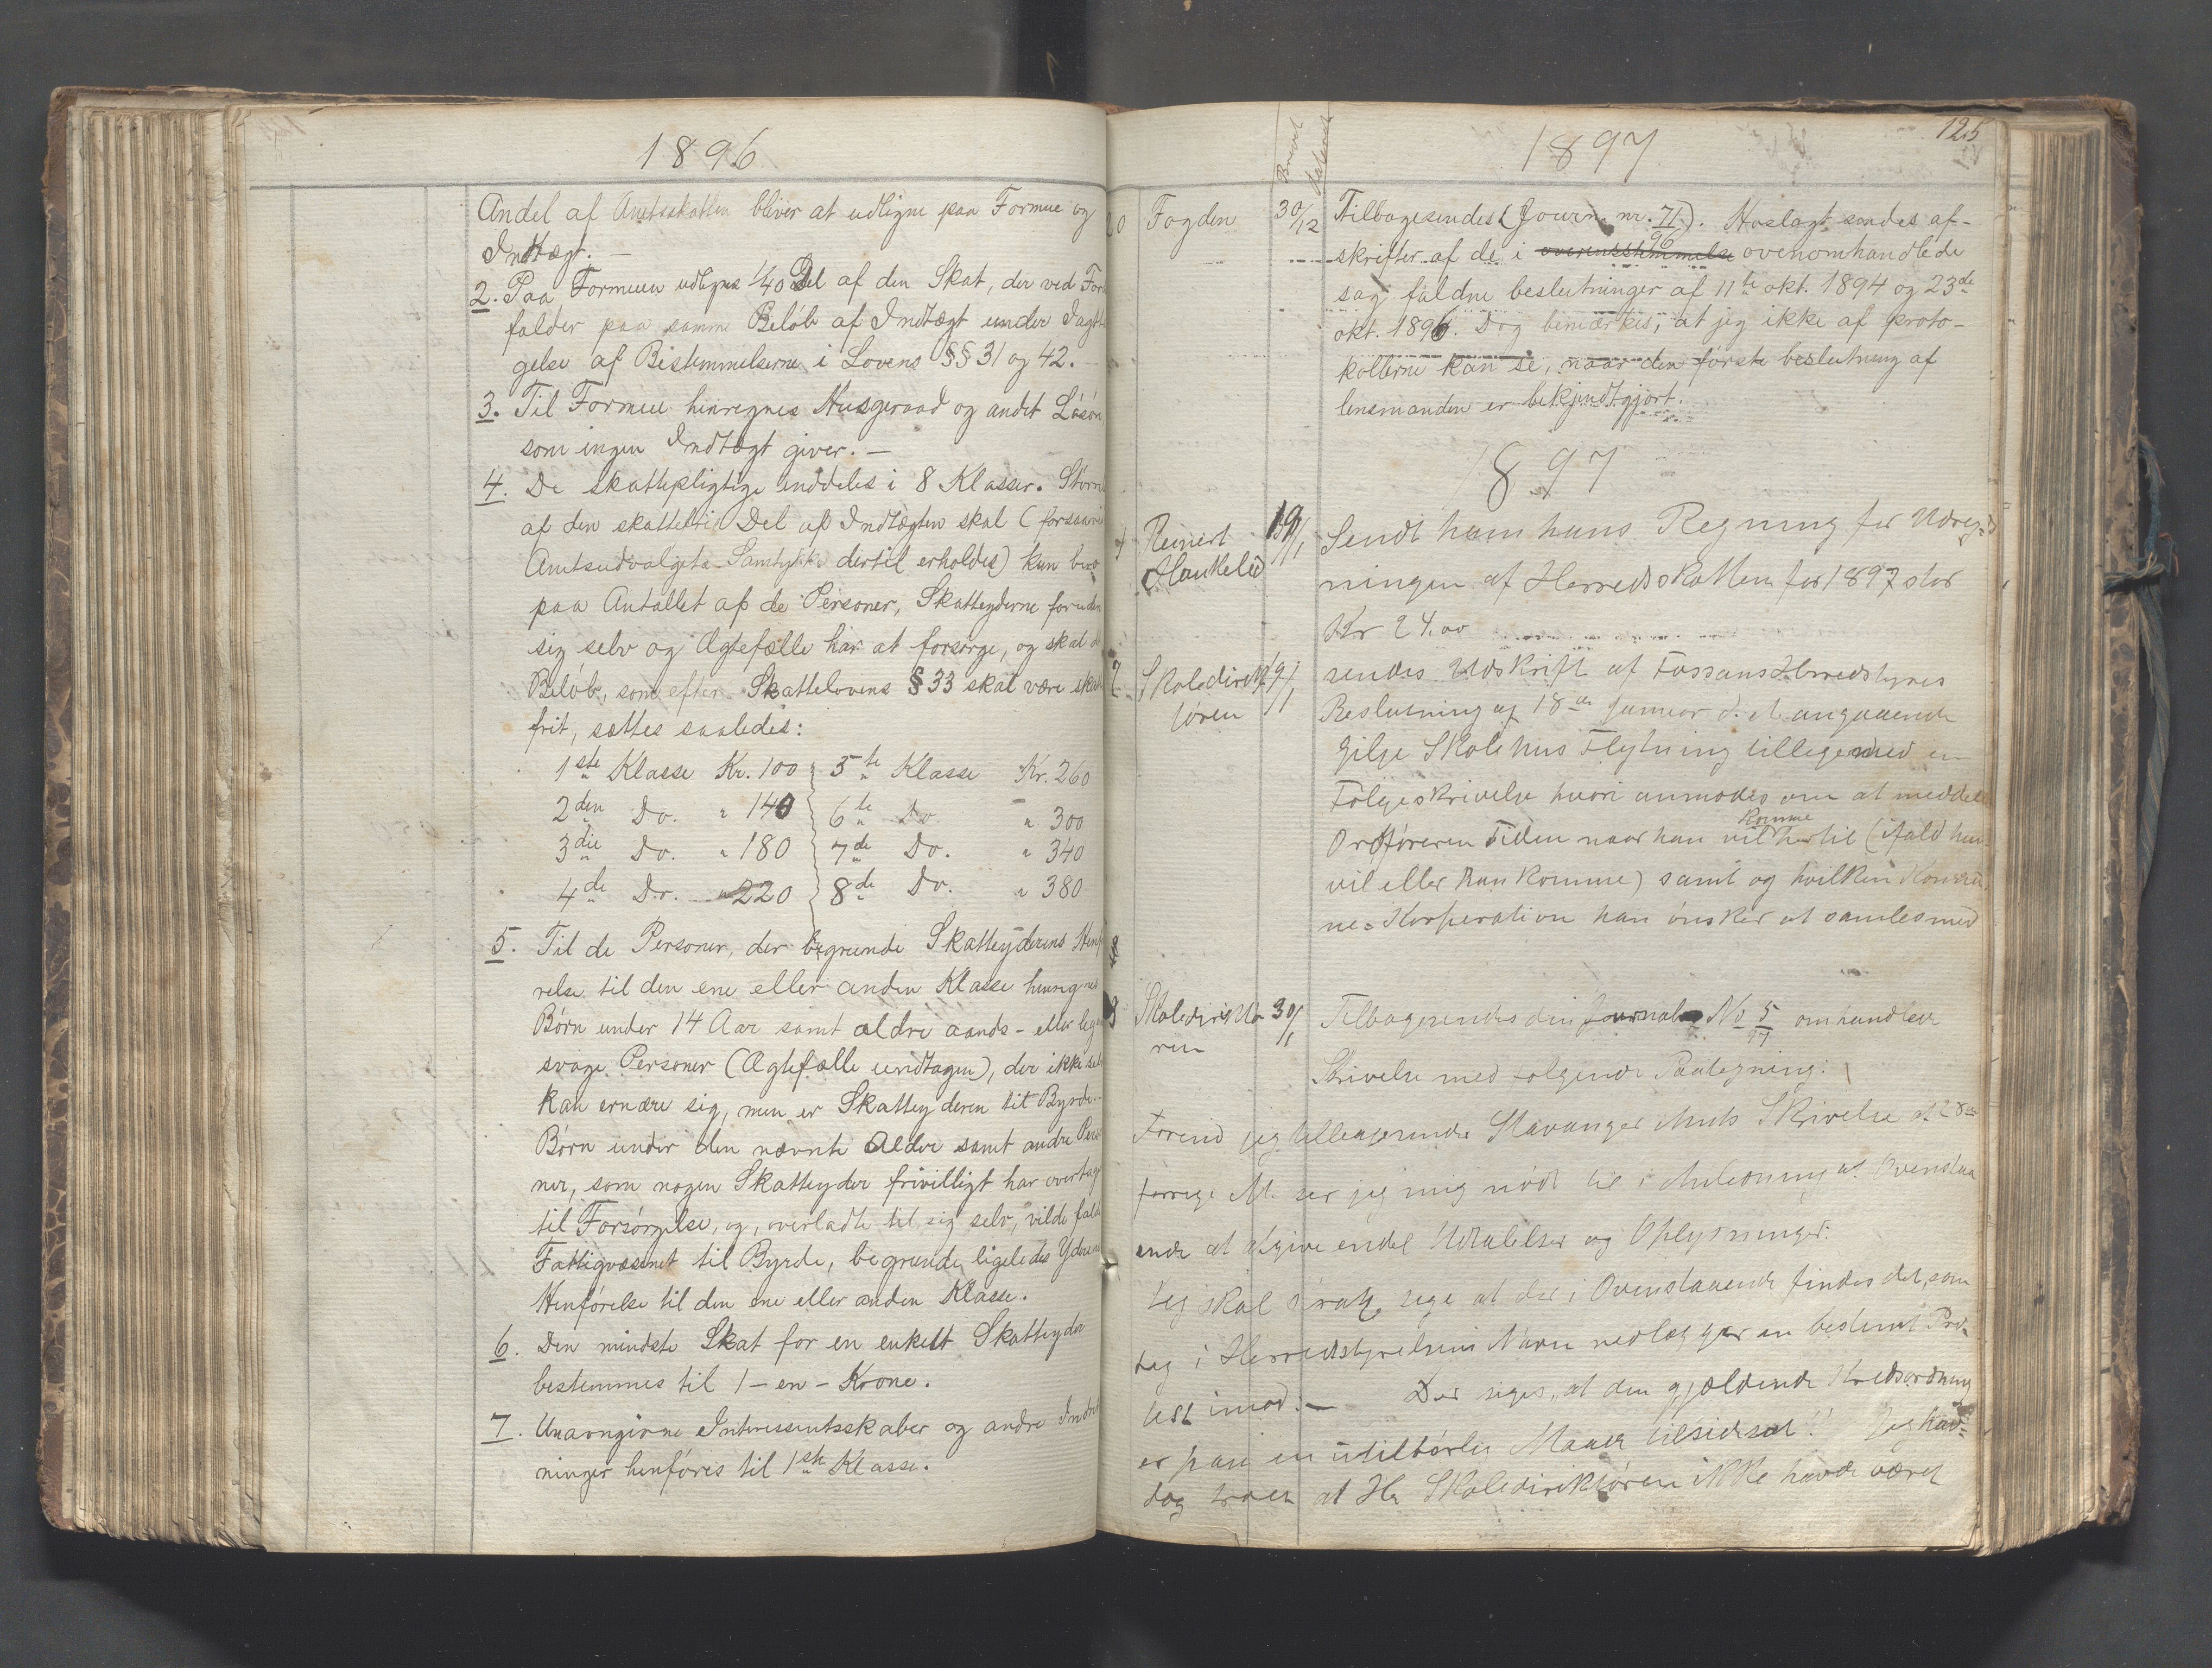 1896
Andel af Amtsskatten bliver at udligne paa Formue og
Indtægt. —
2. Paa Formuen udlignes 1/40 Del af den Skat, der ved For
falder paa samme Beløb af Indtægt under Iagtta
gelse af Bestemmelserne i Lovens §§ 31 og 42. —
3. Til Formue henregnes Husgeraad og andet Løsøre
som ingen Indtægt giver. —
4. De skattepligtige inddeles i 8 Klasser. Større
af den skattefri Del af Indtægten skal (forsaavi
Amtsudvalgets Samtykke dertil erholdes) kun bero
paa Antallet af de Personer, Skatteyderne foruden
sig selv og Ægtefælle har at forsørge, og skal de
Beløb, som efter Skattelovens § 33 skal være skat
frit, sættes saaledes:
1ste Klasse Kr. 100 5te Klasse Kr. 260
2den Do. " 140 6te Do. " 300
3die Do. " 180 7de Do. " 340
4de Do. " 220 8de Do. " 380
5. Til de Personer, der begrunde Skatteyderens Henf
relse til den ene eller anden Klasse henregnes
Børn under 14 Aar samt ældre aands- eller lege
svage Personer (Ægtefælle undtagen), der ikke sel
kan ernære sig, men er Skatteyderen til Byrde. —
Børn under den nævnte Alder samt andre Perso
ner, som nogen Skatteyder frivilligt har overtag
til Forsørgelse, og, overladte til sig selv, vilde fald
Fattigvæsenet til Byrde, begrunde ligeledes Yderens
Henførelse til den ene eller anden Klasse.
6. Den mindste Skat for en enkelt Skatteyder
bestemmes til 1 – en – Krone.
7. Unavngivne Interessentskaber og andre Indret
ninger henføres til 1ste Klasse.
125
1897
20 Fogden 30/12 Tilbagesendes (Journ. nr. 71/96). Hoslagt sendes af-
skrifter af de i overensstemmelse ovenomhandlede
sag faldne beslutninger af 11te okt. 1894 og 23de
okt. 1896. Dog bemærkes, at jeg ikke af proto-
kollerne kan se, naar den første beslutning af
lensmanden er bekjendtgjort.
1897
Reinert 19/1 Sendt ham hans Regning for Udreg-
Haukelid ningen af Herredsskatten for 1897 stor
Kr 24.00
2 Skoledirek 19/1 sendes Udskrift af Fossans Herredstyres
tøren Beslutning af 18de Januar d. A. angaaende
Gilje Skolehus Flytning tilligemed en
Følgeskrivelse hvori anmodes om at meddele
Ordføreren Tiden naar han vil komme hertil (ifald han
vil eller kan komme) samt og hvilken Kommu
ne=Korperation han ønsker at samles med
3 Skoledirektø 30/1 Tilbagesendes din Journal No 5/97 omhandlede
ren Skrivelse med følgende Paategning:
Førend jeg tilbagesender Stavanger Amts Skrivelse af 28de
forrige M. ser jeg mig nødt til i Anledning af Ovenstaa
ende at afgive endel Udtalelser og Oplysninger:
Jeg skal strax sige at der i Ovenstaaende findes det, som
jeg i Herredsstyrelsens Navn nedlægger en bestemt Pro-
test imod: — Der siges, at den gjældende Kredsordning
er paa en utilbørlig Maade tilsidesat!! Jeg hav-
dog troet at Hr Skoledirektøren ikke havde været